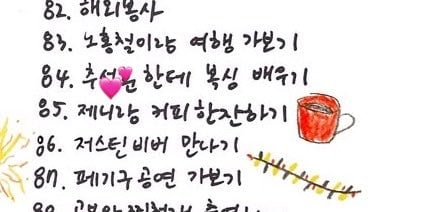 82. 해외봉사
83. 노홍철이랑 여행 가보기
84. 추성훈한테 복싱 배우기
85. 제니랑 커피한잔하기
86. 저스틴비버 만나기
87. 페기구공연 가보기